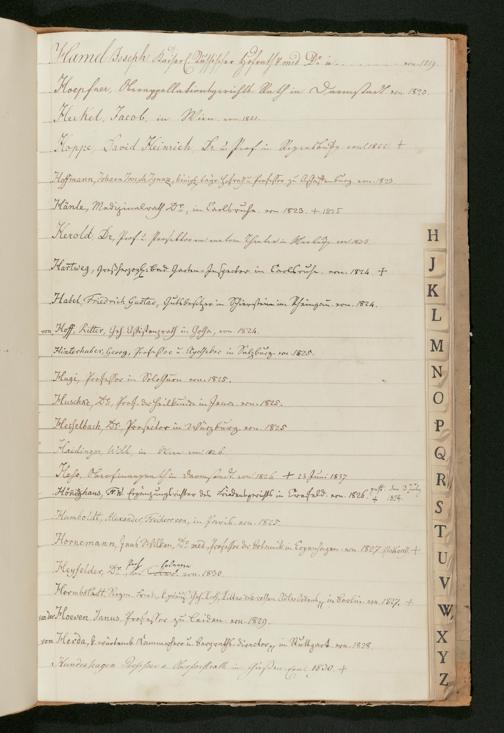 Hamel Joseph Kaiserl. Russischer Hofrath med Dr. von 1819.
Hoepfner, Oberappellationsgerichts Rath in Darmstadt von 1820.
Heckel, Jacob, in Wien von
Hoppe, David Heinrich, Dr. u Prof in Regensburg. +
Hoffmann, Johann Joseph Ignaz, königl. baier. Hofrath u Professor zu Aschaffenburg. von 1823
Hänle, Medizinalrath Dr., in Carlsruhe. von 1823. + 1825
Herold, Dr., Prof. u. Prosektor am anatom. Theater in Marburg. von 1823.
Hartweg, Großherzogl. Bad. Garten-Inspector in Carlsruhe. von 1824. +
Habel, Friedrich Gustav, Gutsbesitzer in Schierstein im Rheingau. von 1824.
von Hoff, Ritter, Geh. Assistenzrath in Gotha, von 1824.
Hinterhuber, Georg, Professor u. Apotheker in Salzburg. von 1825.
Hugi, Professor in Solothurn von 1825.
Huschke, Dr., Prof. der Heilkunde in Jena. von 1825.
Hesselbach, Dr. Prosector in Würzburg. von 1825
Haidinger, Wilh. in Wien von 1826.
Hehr, in Darmstadt. von 1826 + 23 Juni 1837
Höninghaus, Fr. W. Ergänzungsrichter des Friedensgerichts in Crefeld. von 1826. gest. den
+ 1854.
Humboldt, Alexander, Freiherr von, in Paris. von 1825
Hornemann, Jens Wilken, Dr. med., Professor der Botanik in Copenhagen. von 1827. +
Heyfelder, Dr., Prof. in von 1830.
Hermbstädt, Sigm. Fried. k. preuß. Geh. Rath, Ritter des rothen Adlerordens, in Berlin. von 1827. +
van der Hoeven, Janus, Professor zu Leiden. von 1829.
von Herda, k. würtemb. Kammerherr u. Bergraths-Director, in Stuttgart. von 1828.
Hundeshagen Professor u. Oberforstrath in Gießen. 1830. +
H
J
K
L
M
N
O
P
Q
R
S
T
U
V
W
X
Y
Z